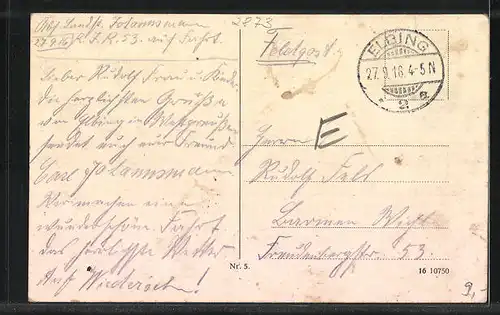 Abs. Landst. Johannsmann
27.9.16 R. I. R. 53. auf Fahrt.
Lieber Rudolf Frau u. Kinder
Die herzlichsten Grüße
von Elbing in Westpreußen
sendet euch euer Freund
Carl Johannsmann
Wir machen eine
wunderschöne Fahrt
das herrlichste Wetter
Auf Wiedersehn!
2873
Feldpost
ELBING
27.9.16.4-5N
2 a
E
Herrn
Rudolf Fels
Barmen Wichl
Freudenbergstr. 53.
Nr. 5.
16 10750
9,-